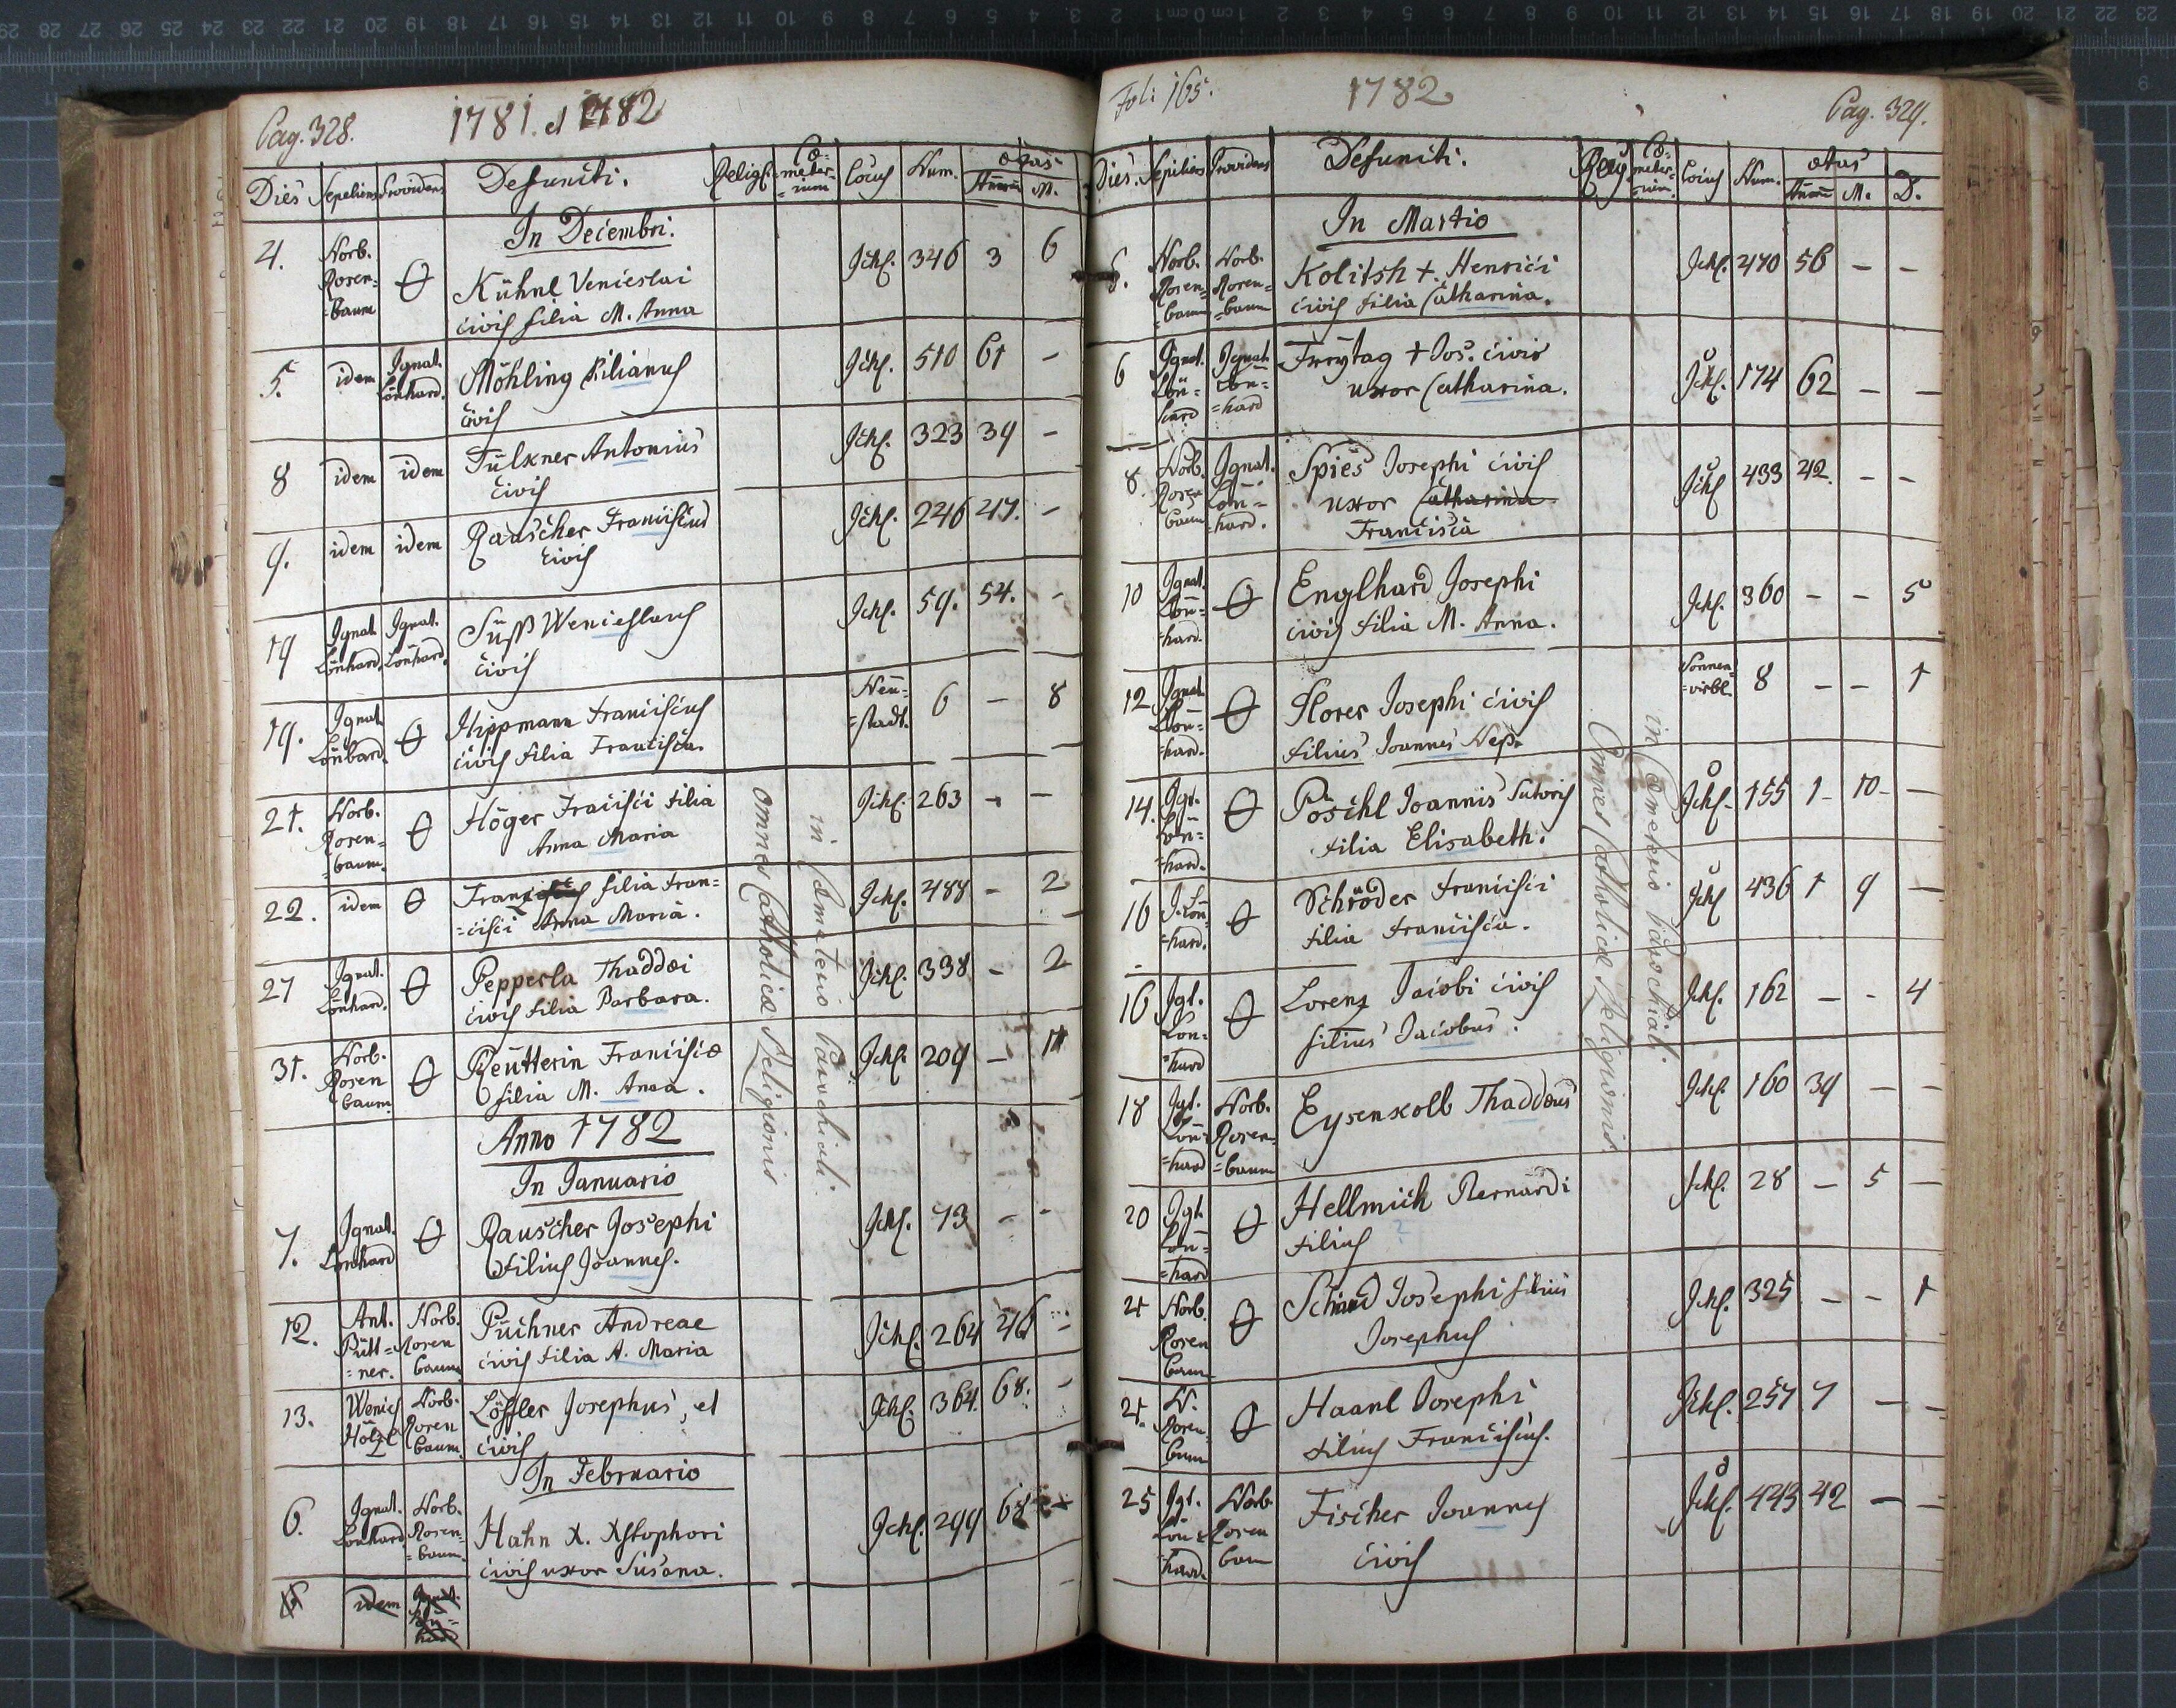 Pag. 328.
1781. et 1782
Dies Sepeliens Providens Defuncti. Religi. Cœ=meter=ium Locus Num. ætas
Annorum M.
In Decembri.
4. Norb. Rosen=baum Ɵ Kühnl Venceslai
civis filia M. Anna
Jchl. 346 3 6
5. idem Ignat. Lönhard. Möhling Kilianus
civis
Jchl. 510 61 –
8 idem idem Fülkner Antonius
civis
Jchl. 323 39 –
9. idem idem Rauscher Franciscus
civis
Jchl. 246 47. –
19 Ignat. Lönhard. Ignat. Lönhard. Süss Wenceslaus
civis
Jchl. 59. 54. –
19. Ignat. Lönhard. Ɵ Hippmann Franciscus
civis filia Francisca.
Neu=stadt. 6 – 8
21. Norb. Rosen=baum. Ɵ Höger Francisci filia
Anna Maria
Jchl. 263 – –
22. idem Ɵ filia Fran=
=cisci Anna Maria.
Jchl. 488 – 2
27 Ignat. Lönhard. Ɵ Pepperla Thaddæi
civis filia Barbara.
Jchl. 338 – 2
31. Norb. Rosen baum. Ɵ Reütterin Franciscæ
filia M. Anna.
Jchl. 209 – 11
Anno 1782
In Januario
7. Ignat. Lönhard Ɵ Rauscher Josephi
filius Joannes.
Jchl. 73 – –
12. Ant. Pütt=ner. Norb. Rosen baum Püchner Andreae
civis filia A. Maria
Jchl. 264 46 –
13. Wences Hölzl Norb. Rosen baum. Löffler Josephus, et
civis
Jchl. 364. 68. –
In Februario
6. Ignat. Lonhard Norb. Rosen=baum. Hahn X. Xstophori
civis uxor Susana.
Jchl. 299 68
idem
omnes Catholicæ Religionis
in Cœmeterio Parochiali.
Fol: 165.
1782
Pag. 329.
Dies. Sepeliens Providens Defuncti. Relig. Cœ=meter=ium. Locus Num. ætas
Annorum M. D.
In Martio
6. Norb. Rosen=baum Norb. Rosen=baum Kolitsh +. Henrici
civis filia Catharina.
Jchl. 270 56 – –
6 Ignat. Lön=hard Ignat. Lön=hard Freÿtag + Jos. civis
uxor Catharina.
Jchl. 174 62 – –
8. Norb. Rosen baum Ignat. Lön=hard. Spies Josephi civis
uxor Catharina
Francisca
Jchl 433 42. – –
10 Ignat. Lön=hard. Ɵ Englhard Josephi
civis filia M. Anna.
Jchl. 360 – – 5
12 Ignat. Lön=hard. Ɵ Florer Josephi civis
filius Joannes Nep.
Sonnen=wirbl. 8 – – 1
14. Igt. Lön=hard. Ɵ Pöschl Joannis Sutoris
filia Elisabeth.
Jchl. 155 1 – 10 – –
16 J. Lön=hard. Ɵ Schröder Francisci
filia Francisca.
Jchl 436 1 9 –
16 Igt. Lön=hard Ɵ Lorenz Jacobi civis
filius Jacobus.
Jchl. 162 – – 4
18 Igt. Lön=hard Norb. Rosen=baum Eysenkolb Thaddæus
Jchl. 160 39 – –
20 Igt. Lön=hard Ɵ Hellmich Bernardi
filius ?
Jchl. 28 – 5 –
21 Norb. Rosen baum Ɵ Schmid Josephi filius
Josephus
Jchl. 325 – – 1
21. N. Rosen=baum Ɵ Haanl Josephi
filius Franciscus.
Jchl. 257 7 – –
25 Igt. Lön=hard. Norb. Rosen bam Fischer Joannes
civis
Jchl. 443 42 – –
Omnes Catholicæ Religionis.
in Cœmeterio Parochiali.